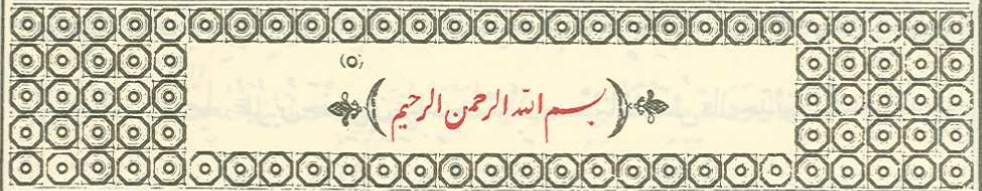 (٥)
بسم الله الرحمن الرحيم